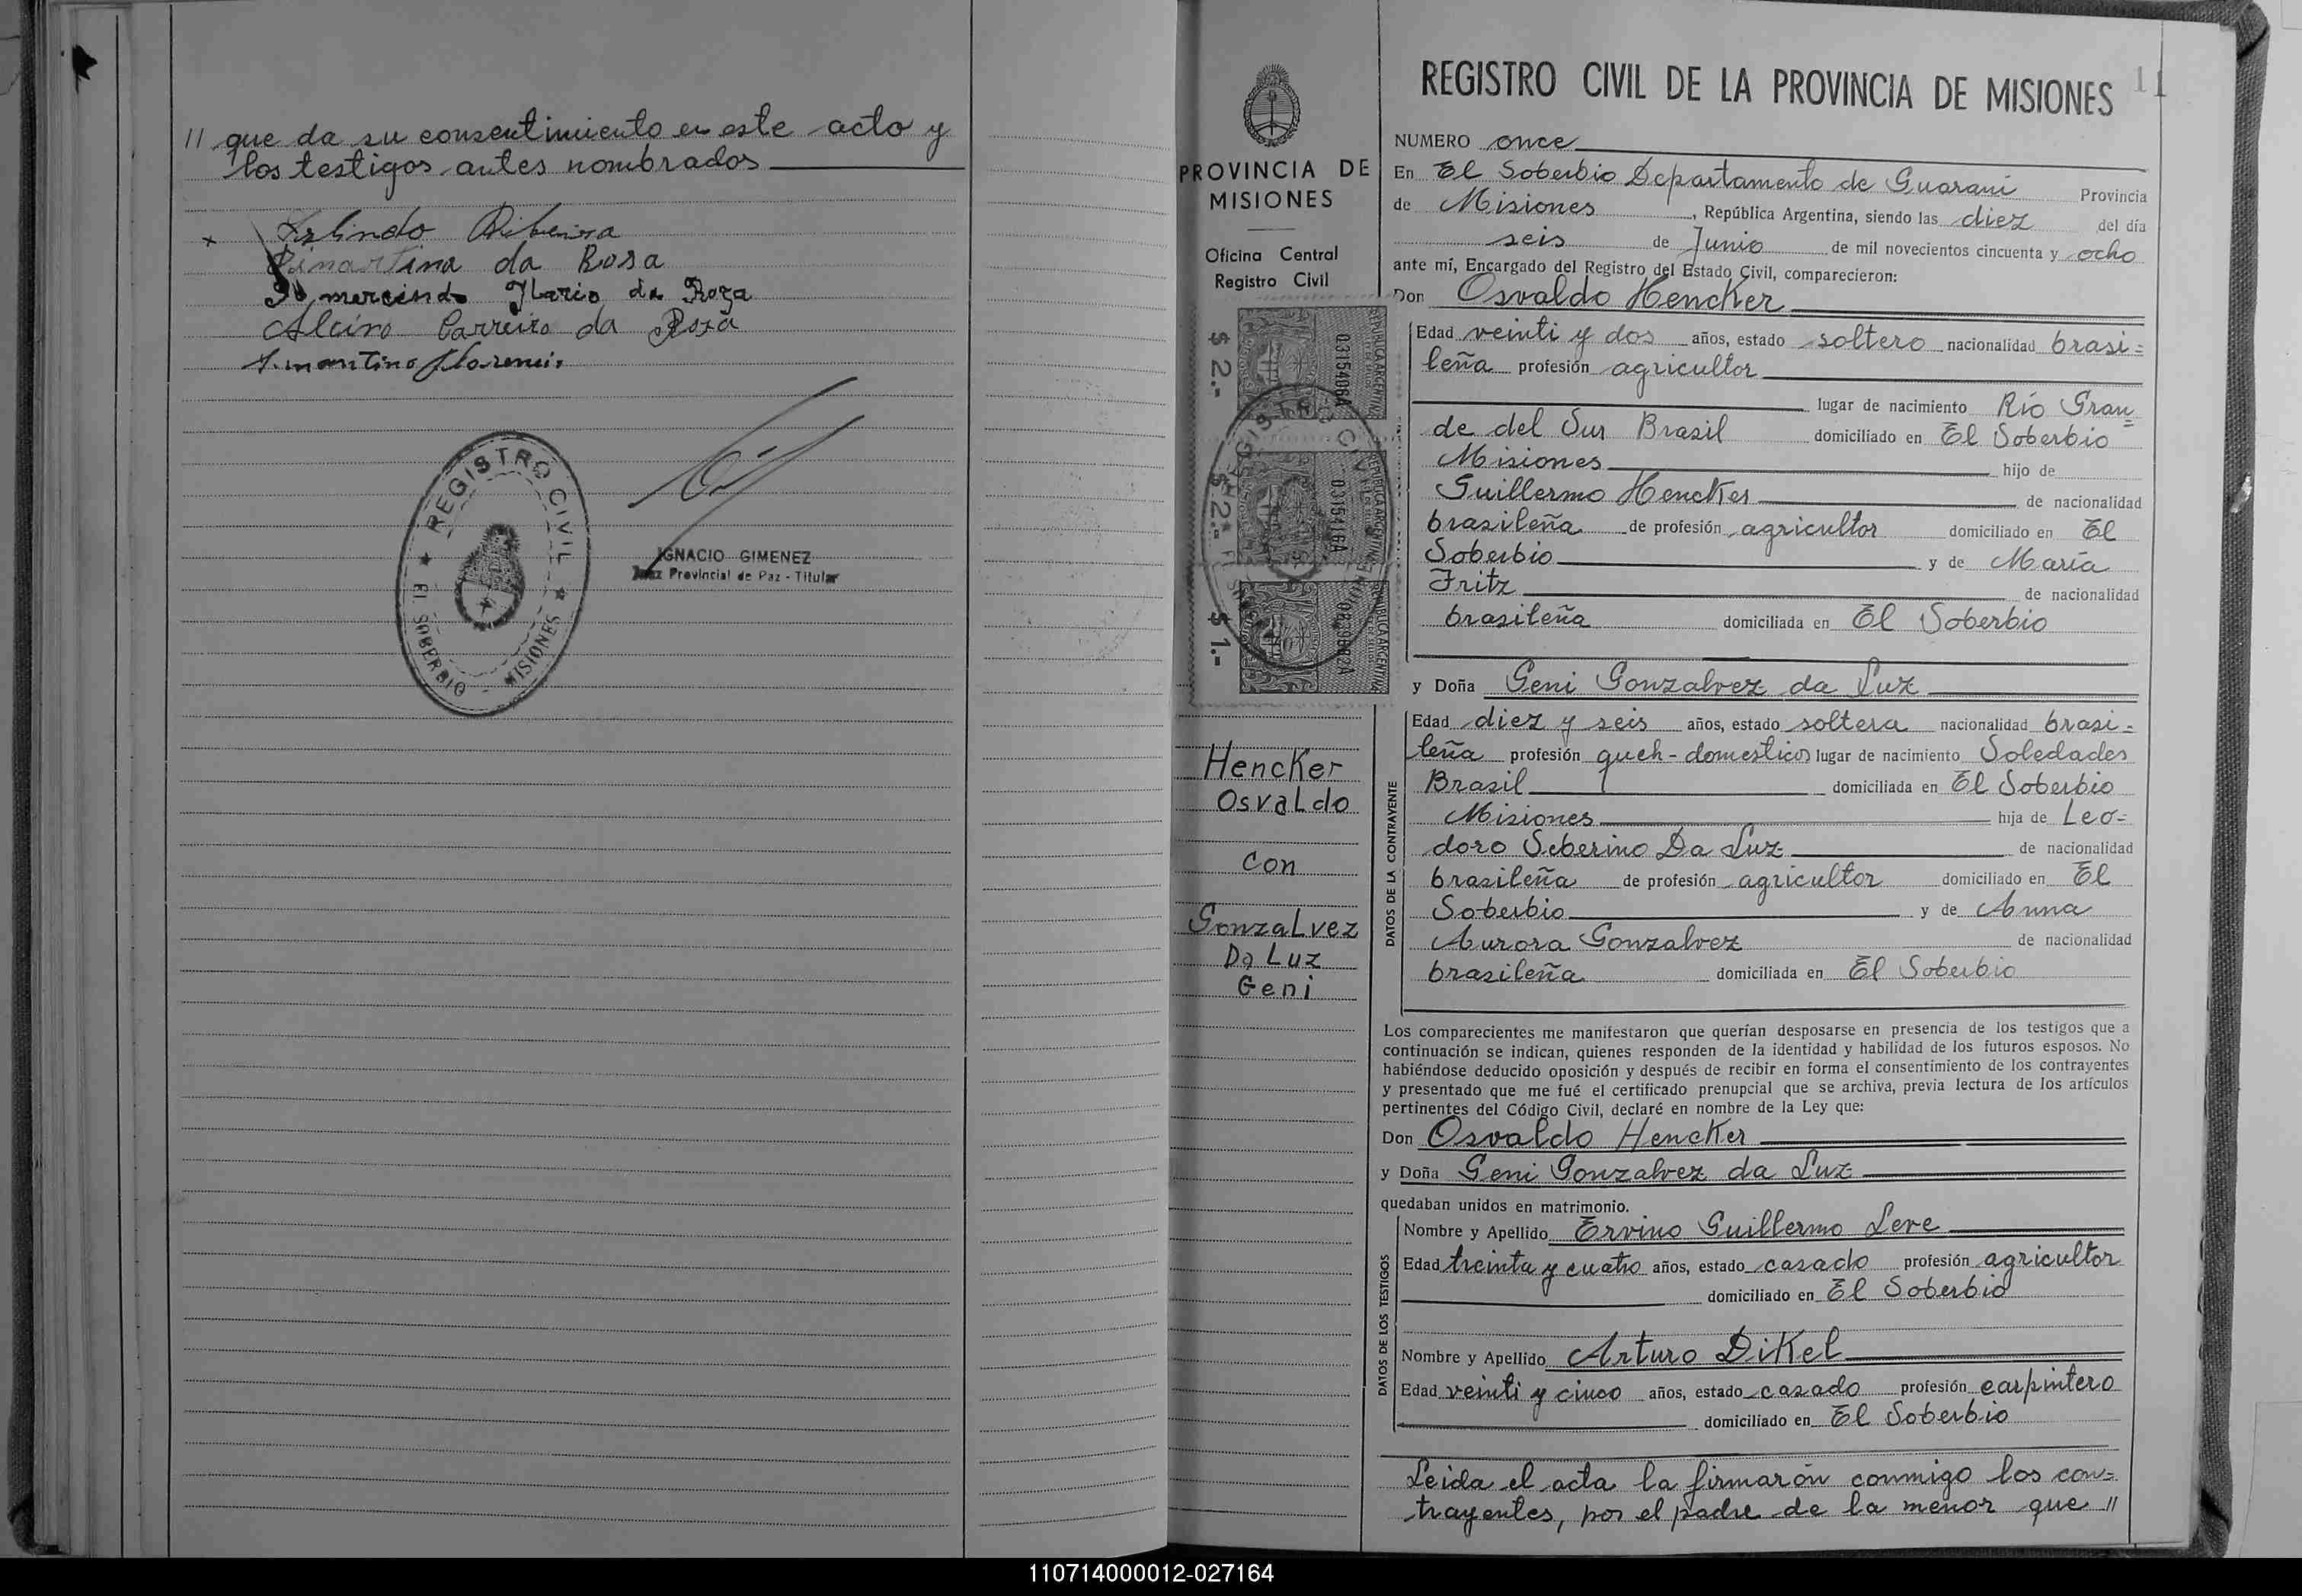 // que da su consentimiento en este acto y
los testigos antes nombrados
Arlindo Ribeira
da Rosa
Ilario da Roza
Alciro Carreiro da Roza
REGISTRO CIVIL
EL SOBERBIO - MISIONES
IGNACIO GIMENEZ
Juez Provincial de Paz - Titular
PROVINCIA DE
MISIONES
Oficina Central
Registro Civil
REPUBLICA ARGENTINA
$ 2.-
03154086A
$ 2.-
0315416A
$ 1.-
Hencker
Osvaldo
con
Gonzalvez
Da Luz
Geni
REGISTRO CIVIL DE LA PROVINCIA DE MISIONES 11
NUMERO once
En El Soberbio Departamento de Guaraní Provincia
de Misiones, República Argentina, siendo las diez del día
seis de Junio de mil novecientos cincuenta y ocho
ante mí, Encargado del Registro del Estado Civil, comparecieron:
Don Osvaldo Hencker
Edad veinti y dos años, estado soltero nacionalidad brasi=
leña profesión agricultor
lugar de nacimiento Río Gran=
de del Sur Brasil domiciliado en El Soberbio
Misiones hijo de
Guillermo Hencker de nacionalidad
brasileña de profesión agricultor domiciliado en El
Soberbio y de María
Fritz de nacionalidad
brasileña domiciliada en El Soberbio
y Doña Geni Gonzalvez da Luz
DATOS DE LA CONTRAYENTE
Edad diez y seis años, estado soltera nacionalidad brasi=
leña profesión queh-domesticos lugar de nacimiento Soledades
Brasil domiciliada en El Soberbio
Misiones hija de Leo=
doro Seberino Da Luz de nacionalidad
brasileña de profesión agricultor domiciliado en El
Soberbio y de Anna
Aurora Gonzalvez de nacionalidad
brasileña domiciliada en El Soberbio
Los comparecientes me manifestaron que querían desposarse en presencia de los testigos que a
continuación se indican, quienes responden de la identidad y habilidad de los futuros esposos. No
habiéndose deducido oposición y después de recibir en forma el consentimiento de los contrayentes
y presentado que me fué el certificado prenupcial que se archiva, previa lectura de los artículos
pertinentes del Código Civil, declaré en nombre de la Ley que:
Don Osvaldo Hencker
y Doña Geni Gonzalvez da Luz
quedaban unidos en matrimonio.
DATOS DE LOS TESTIGOS
Nombre y Apellido Ervino Guillermo Leve
Edad treinta y cuatro años, estado casado profesión agricultor
domiciliado en El Soberbio
Nombre y Apellido Arturo Dikel
Edad veinti y cinco años, estado casado profesión carpintero
domiciliado en El Soberbio
Leida el acta la firmarón conmigo los con=
trayentes, por el padre de la menor que //
110714000012-027164